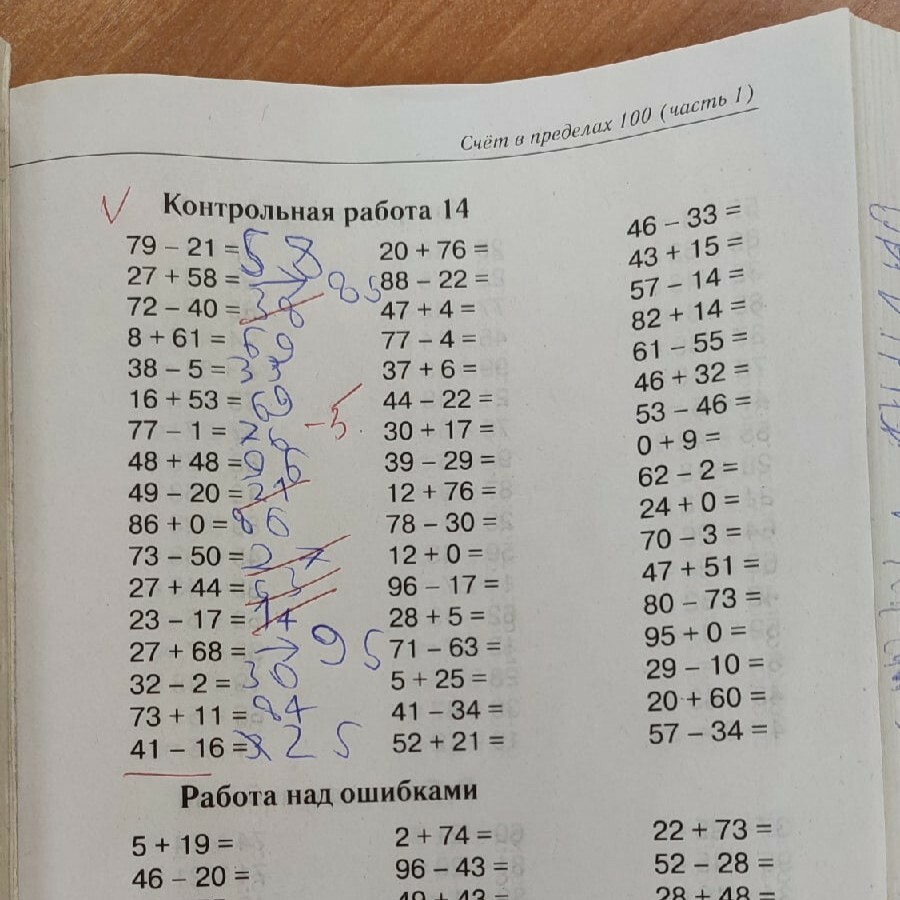 Счёт в пределах 100 (часть 1)
V Контрольная работа 14
79 – 21 = 58
27 + 58 = 85
72 – 40 = 38
8 + 61 = 69
38 – 5 = 33
16 + 53 = 69
-5
77 – 1 = 76
48 + 48 = 96
49 – 20 = 27
86 + 0 = 86
73 – 50 =
27 + 44 = 63
23 – 17 = 14
27 + 68 = 95
32 – 2 = 30
73 + 11 = 84
41 – 16 = 25
20 + 76 =
88 – 22 =
47 + 4 =
77 – 4 =
37 + 6 =
44 – 22 =
30 + 17 =
39 – 29 =
12 + 76 =
78 – 30 =
12 + 0 =
96 – 17 =
28 + 5 =
71 – 63 =
5 + 25 =
41 – 34 =
52 + 21 =
46 – 33 =
43 + 15 =
57 – 14 =
82 + 14 =
61 – 55 =
46 + 32 =
53 – 46 =
0 + 9 =
62 – 2 =
24 + 0 =
70 – 3 =
47 + 51 =
80 – 73 =
95 + 0 =
29 – 10 =
20 + 60 =
57 – 34 =
Работа над ошибками
5 + 19 =
46 – 20 =
2 + 74 =
96 – 43 =
49 + 43 =
22 + 73 =
52 – 28 =
28 + 48 =